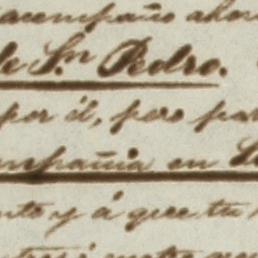 acompaño ahor
de Sn Pedro.
por él, pero pa
mpañia en
nto y á que tu